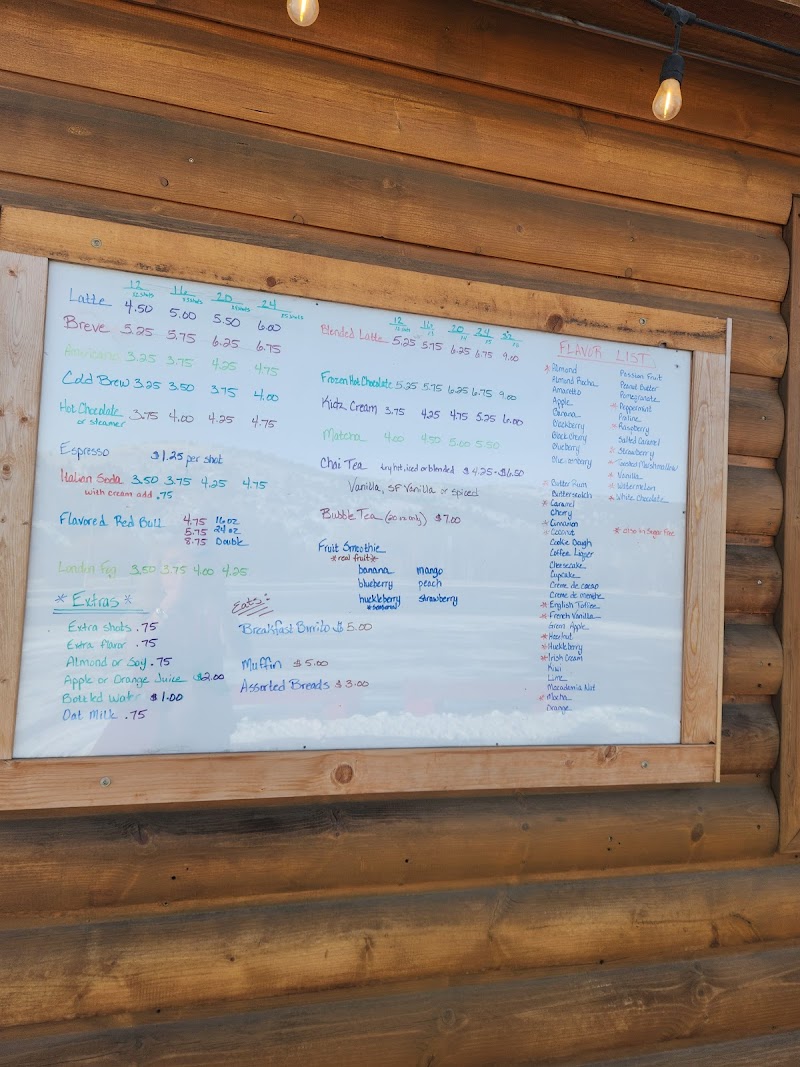 12 16 20 24
Latte 4.50 5.00 5.50 6.00
Breve 5.25 5.75 6.25 6.75
Americano 3.25 3.75 4.25 4.75
Cold Brew 3.25 3.50 3.75 4.00
Hot Chocolate 3.75 4.00 4.25 4.75
or steamer
Espresso $1.25 per shot
Italian Soda 3.50 3.75 4.25 4.75
with cream add .75
Flavored Red Bull 4.75 16oz
5.75 24oz
8.75 Double
London Fog 3.50 3.75 4.00 4.25
* Extras *
Extra shots .75
Extra flavor .75
Almond or Soy .75
Apple or Orange Juice $2.00
Bottled Water $1.00
Oat Milk .75
Eats:
Breakfast Burrito $5.00
Muffin $5.00
Assorted Breads $3.00
12 16 20 24 32
Blended Latte 5.25 5.75 6.25 6.75 9.00
Frozen Hot Chocolate 5.25 5.75 6.25 6.75 9.00
Kidz Cream 3.75 4.25 4.75 5.25 6.00
Matcha 4.00 4.50 5.00 5.50
Chai Tea try hot, iced or blended $4.25-$6.50
Vanilla, SF Vanilla or spiced
Bubble Tea (20 oz only) $7.00
Fruit Smoothie
*real fruit*
banana mango
blueberry peach
huckleberry strawberry
*seasonal
FLAVOR LIST
* Almond
Almond Rocha
Amaretto
Apple
Banana
Blackberry
Black Cherry
Blueberry
Butter Rum
Butterscotch
* Caramel
Cherry
* Cinnamon
* Coconut
Cookie Dough
Coffee Liquer
Cheesecake
Cupcake
Creme de cacao
Creme de menthe
* English Toffee
* French Vanilla
Green Apple
* Hazelnut
* Huckleberry
* Irish Cream
Kiwi
Lime
Macadamia Nut
* Mocha
Orange
Passion Fruit
Peanut Butter
Pomegranate
* Peppermint
Praline
* Raspberry
Salted Caramel
* Strawberry
* Toasted Marshmallow
* Vanilla
* Watermelon
* White Chocolate
* also in Sugar Free